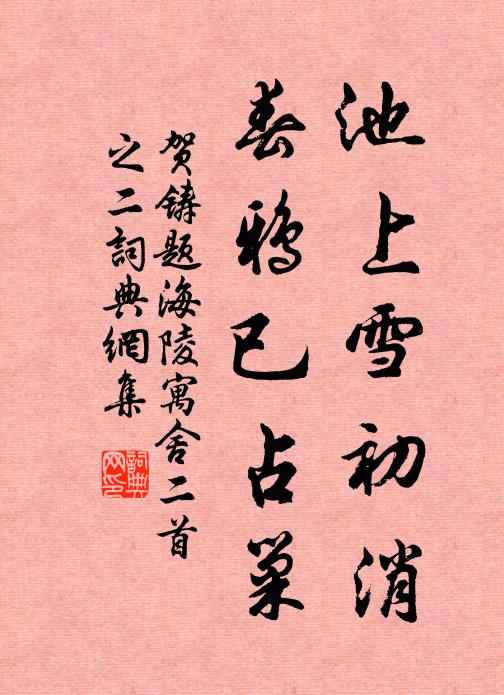 池上雪初消
春鸦已占巢
贺铸题海陵寓舍二首
之二詞典網集
詞典
网印